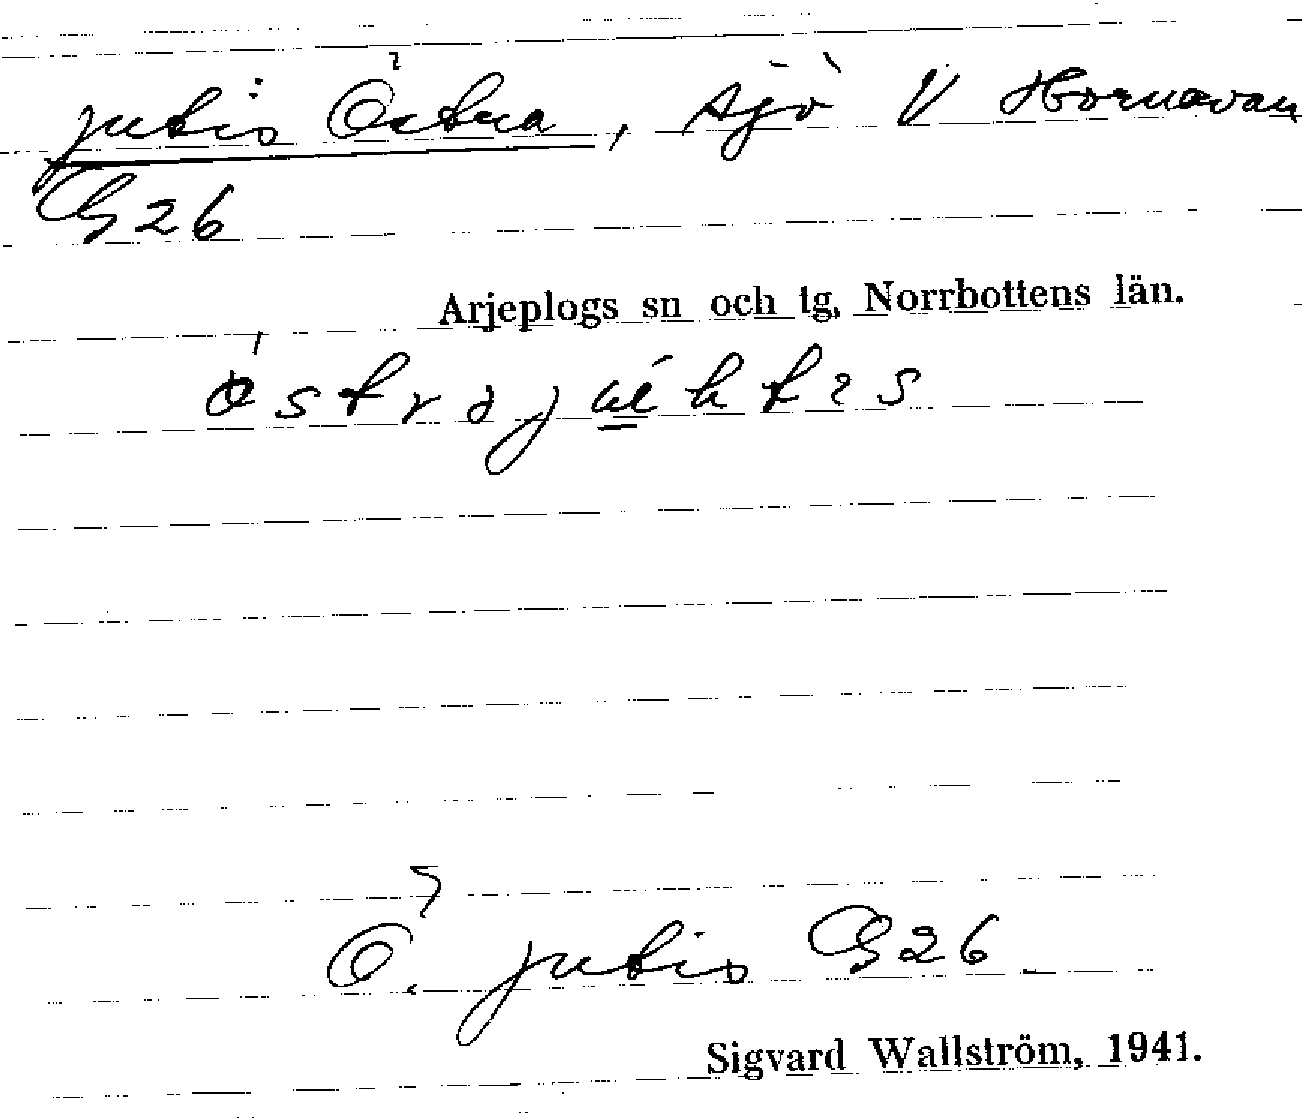 jutis Östra, sjö V Hornavan
G26
Arjeplogs sn och tg, Norrbottens län.
Ö. jutis G26
Sigvard Wallström, 1941.